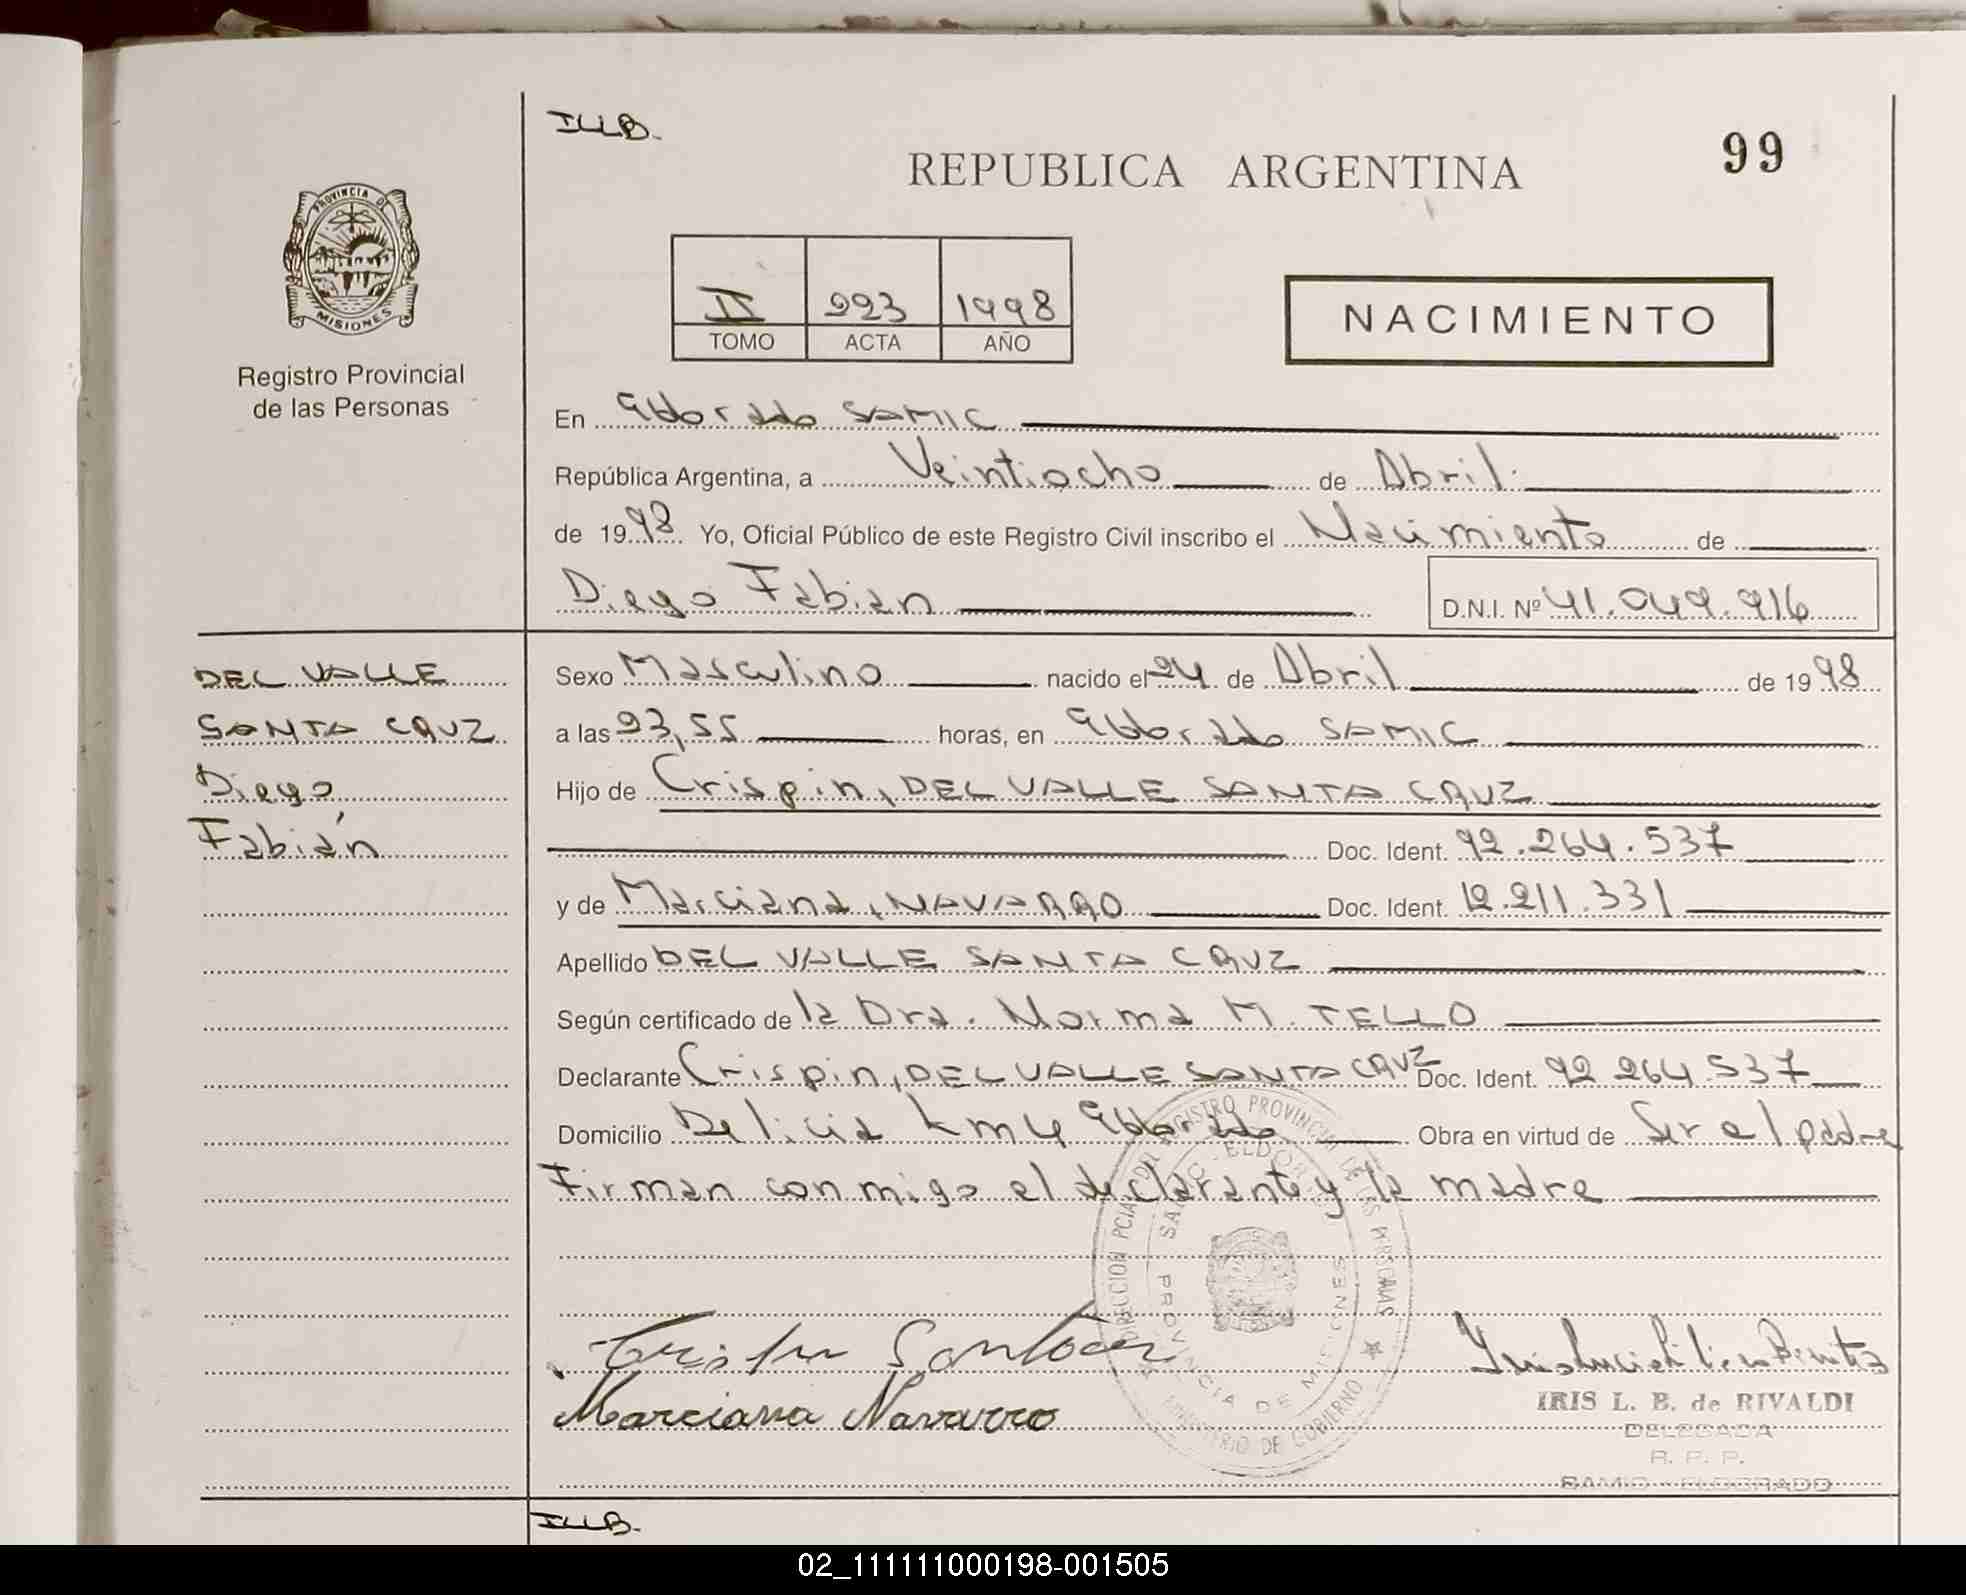 ILLB.
REPUBLICA ARGENTINA
99
PROVINCIA DE
MISIONES
Registro Provincial
de las Personas
II 223 1998
TOMO ACTA AÑO
NACIMIENTO
En Eldorado SAMIC
República Argentina, a Veintiocho de Abril.
de 1998 Yo, Oficial Público de este Registro Civil inscribo el Nacimiento de
Diego Fabian D.N.I. Nº 41.049.916
DEL VALLE
SANTA CRUZ
Diego
Fabián
Sexo Masculino nacido el 24 de Abril de 1998
a las 23,55 horas, en Eldorado SAMIC
Hijo de Crispin, DEL VALLE SANTA CRUZ
Doc. Ident. 92.264.537
y de Marciana, NAVARRO Doc. Ident. 12.211.331
Apellido DEL VALLE SANTA CRUZ
Según certificado de la Dra. Norma M. TELLO
Declarante Crispin, DEL VALLE SANTA CRUZ Doc. Ident. 92 264.537
Domicilio Delicia km 4 Eldorado Obra en virtud de Ser el padre
Firman conmigo el declarante y la madre
DIRECCION PCIAL DEL REGISTRO PROVINCIAL DE LAS PERSONAS
SAMIC - ELDORADO
PROVINCIA DE MISIONES
MINISTERIO DE GOBIERNO
Marciana Navarro
IRIS L. B. de RIVALDI
DELEGADA
R. P. P.
SAMIC - ELDORADO
ILLB.
02_111111000198-001505